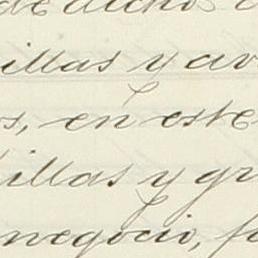 de dicho
illas y av
s, en este
illas y gr
negocio, fo